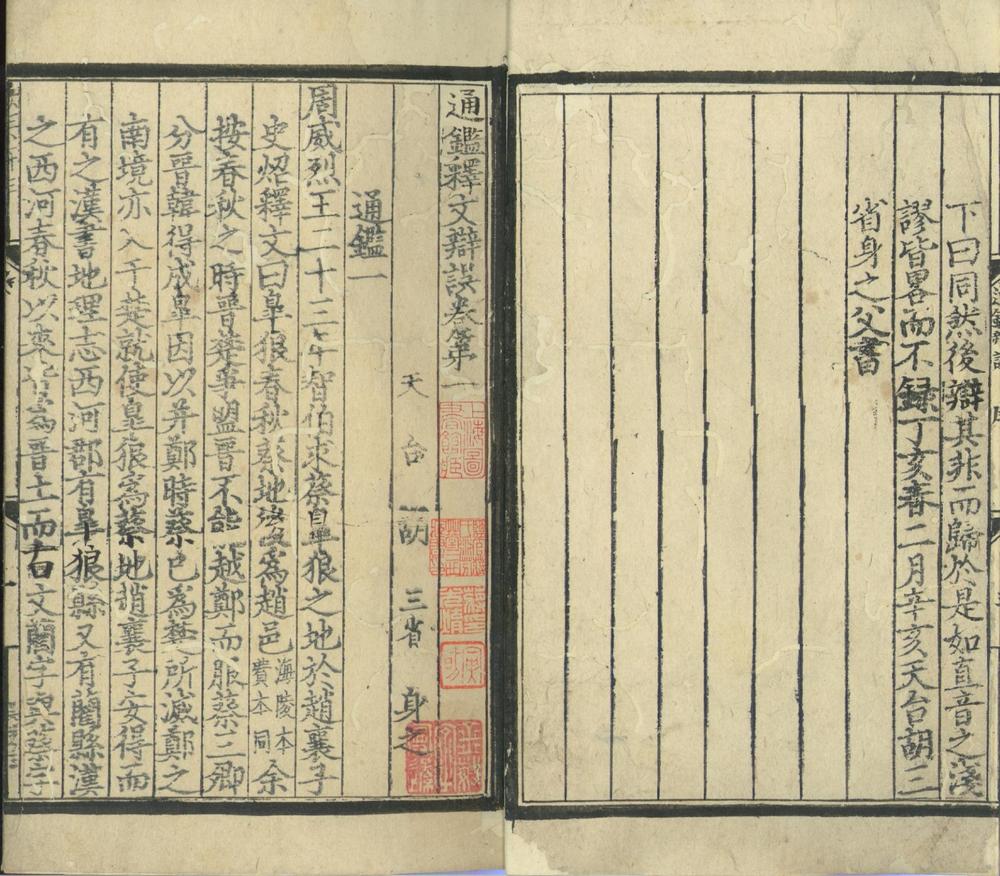 下曰同然後辯其非而歸於是如直音之淺
謬皆畧而不録丁亥春二月辛亥天台胡三
省身之父書
通鑑釋文辯誤卷第一
天台胡三省身之
通鑑一
周威烈王二十三年智伯求蔡皐狼之地於趙襄子
史炤釋文曰皐狼春秋蔡地後為趙邑海陵本費本同余
按春秋之時晉楚爭盟晉不能越鄭而服蔡三卿
分晉韓得成皐因以并鄭時蔡已為楚所滅鄭之
南境亦入于楚就使皐狼為蔡地趙襄子安得而
有之漢書地理志西河郡有皐狼縣又有藺縣漢
之西河春秋以來皆為晉土而古文藺字與蔡字